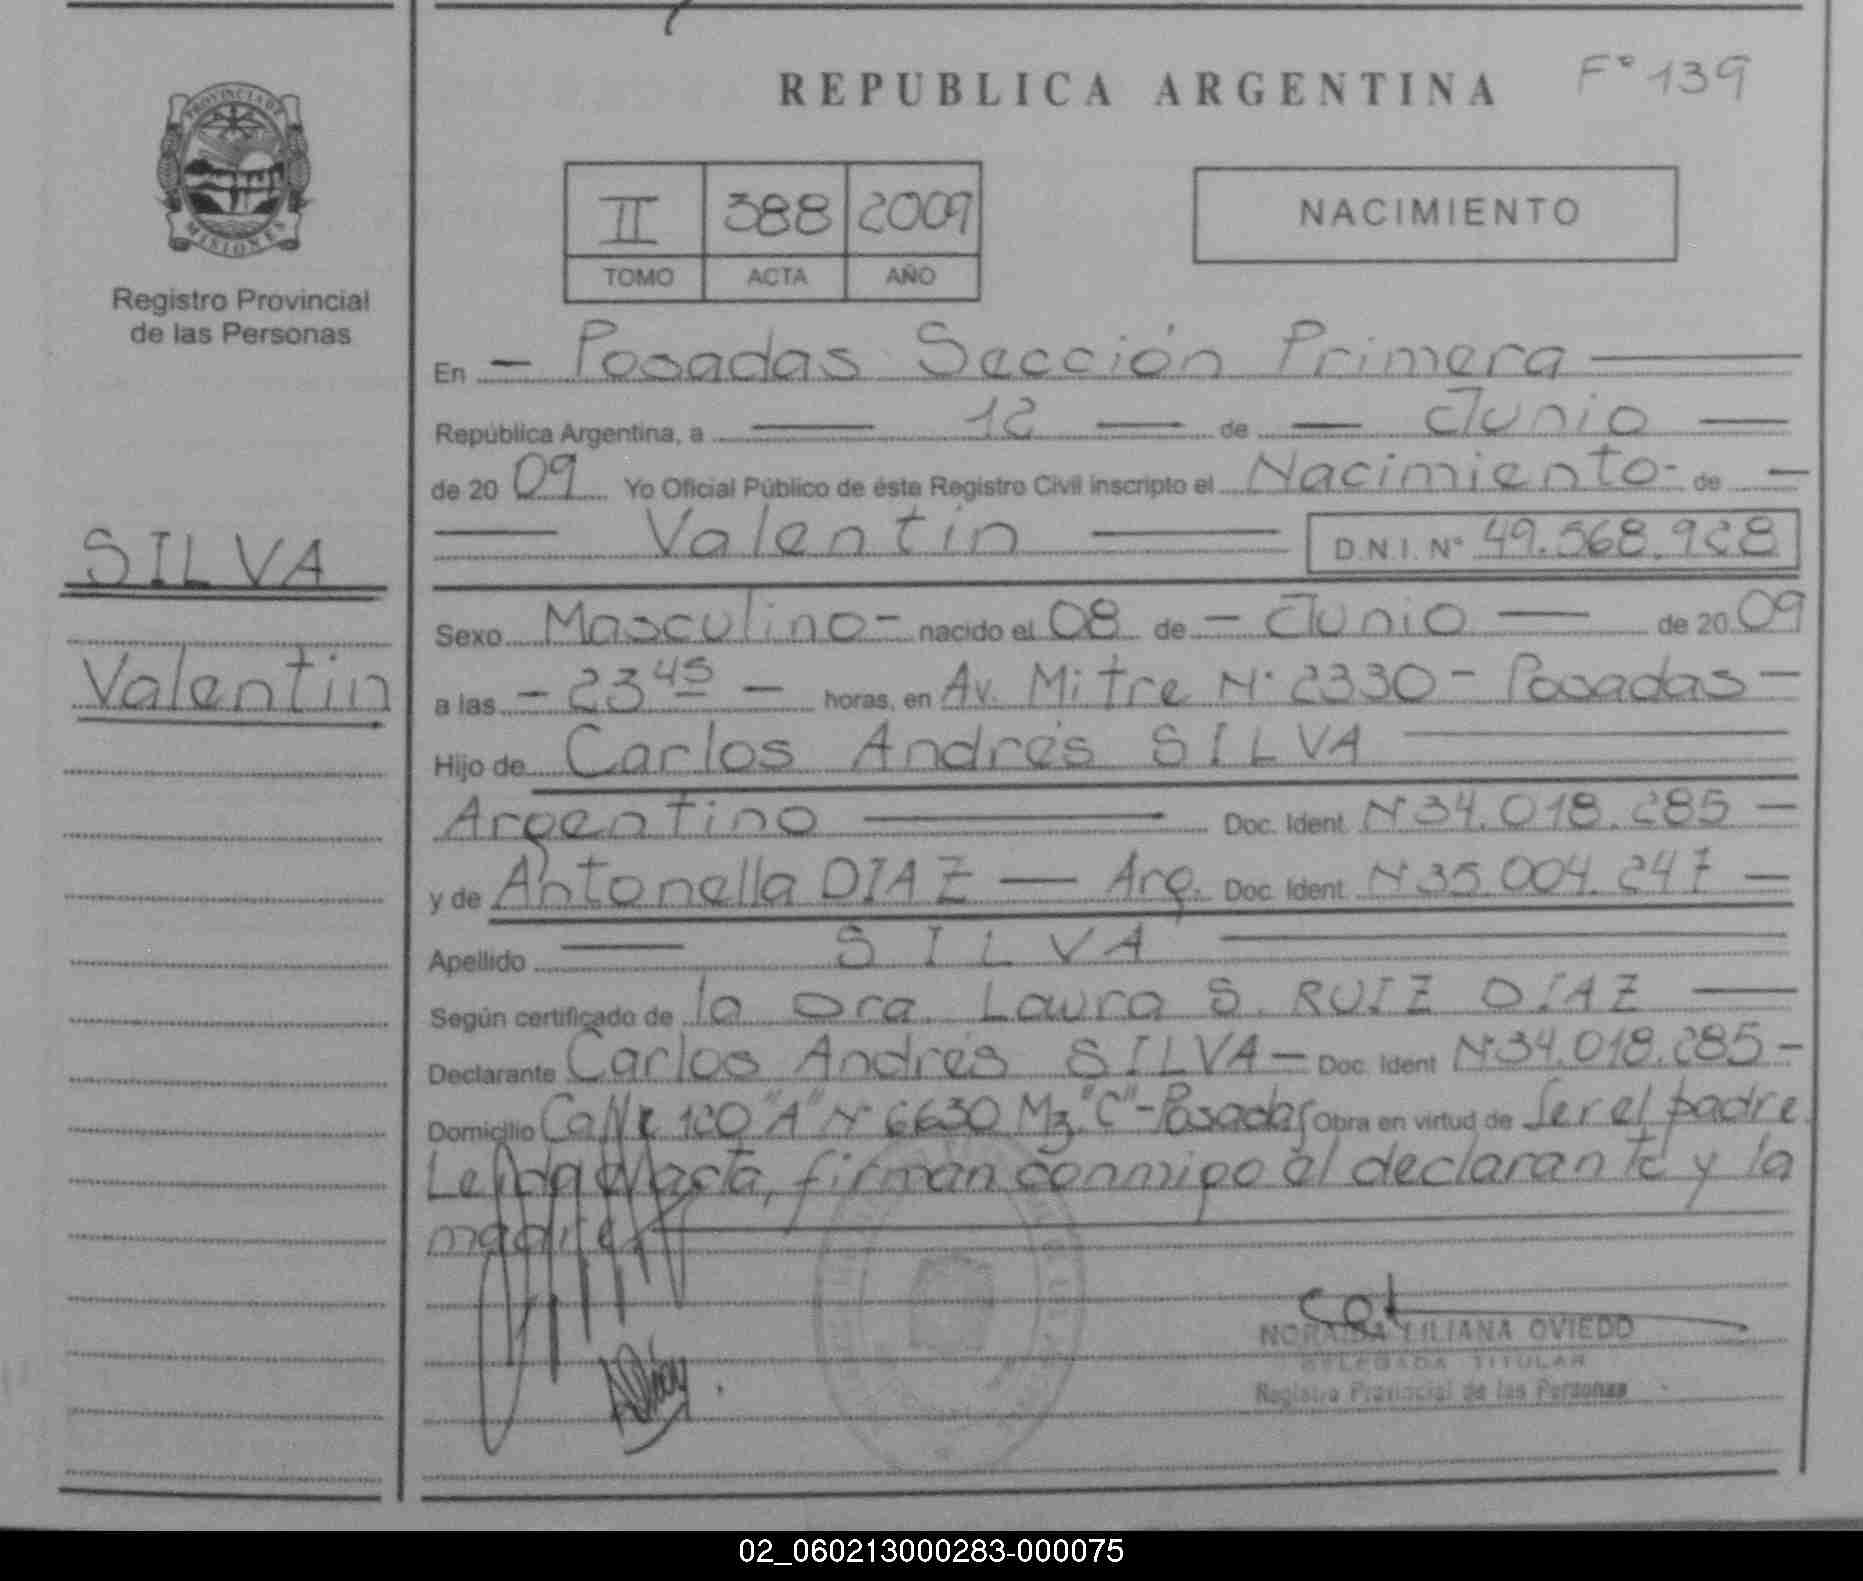 REPUBLICA ARGENTINA
Fº 139
PROVINCIA DE
MISIONES
Registro Provincial
de las Personas
II 388 2009
TOMO ACTA AÑO
NACIMIENTO
En – Posadas Sección Primera
República Argentina, a 12 de Junio
de 20 09 Yo Oficial Público de éste Registro Civil inscripto el Nacimiento - de -
Valentin D.N.I. Nº 49.568.928
SILVA
Valentin
Sexo Masculino - nacido el 08 de - Junio — de 20 09
a las - 23 45 - horas, en Av. Mitre Nº 2330 - Posadas -
Hijo de Carlos Andrés SILVA
Argentino Doc. Ident. Nº 34.018.285 -
y de Antonella DIAZ — Arg. Doc. Ident. Nº 35.004.247 -
Apellido SILVA
Según certificado de la Dra. Laura S. RUIZ DIAZ
Declarante Carlos Andrés SILVA - Doc. Ident Nº 34.018.285 -
Domicilio Calle 120 "A" Nº 6630 Mz. "C" - Posadas Obra en virtud de Ser el padre.
Leída el acta, firman conmigo el declarante y la
madre.
NORAIDA LILIANA OVIEDO
DELEGADA TITULAR
Registro Provincial de las Personas
02_060213000283-000075